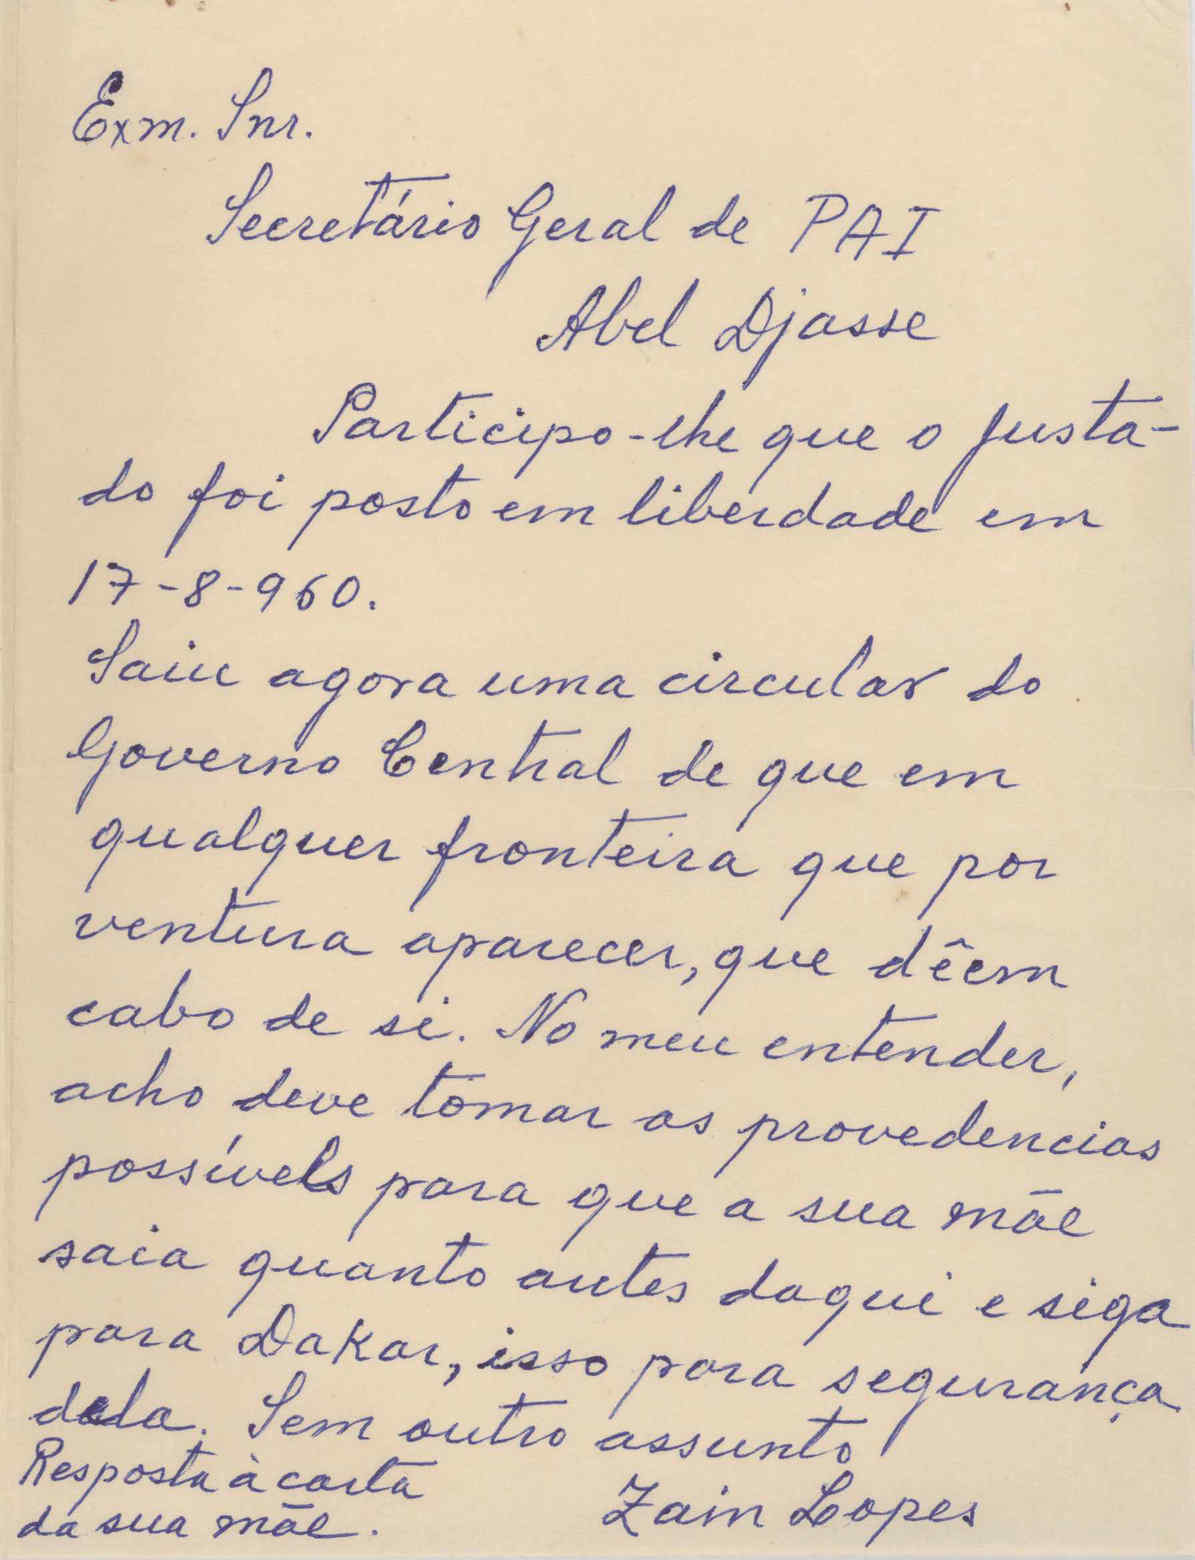 Exm. Snr.
Secretário Geral de PAI
Abel Djasse
Participo-lhe que o Justa-
do foi posto em liberdade em
17-8-960.
Saiu agora uma circular do
Governo Central de que em
qualquer fronteira que por
ventura aparecer, que dêem
cabo de si. No meu entender,
acho deve tomar as provedencias
possíveis para que a sua mãe
saia quanto antes daqui e siga
para Dakar, isso para segurança
dela. Sem outro assunto
Resposta à carta
da sua mãe.
Zain Lopes